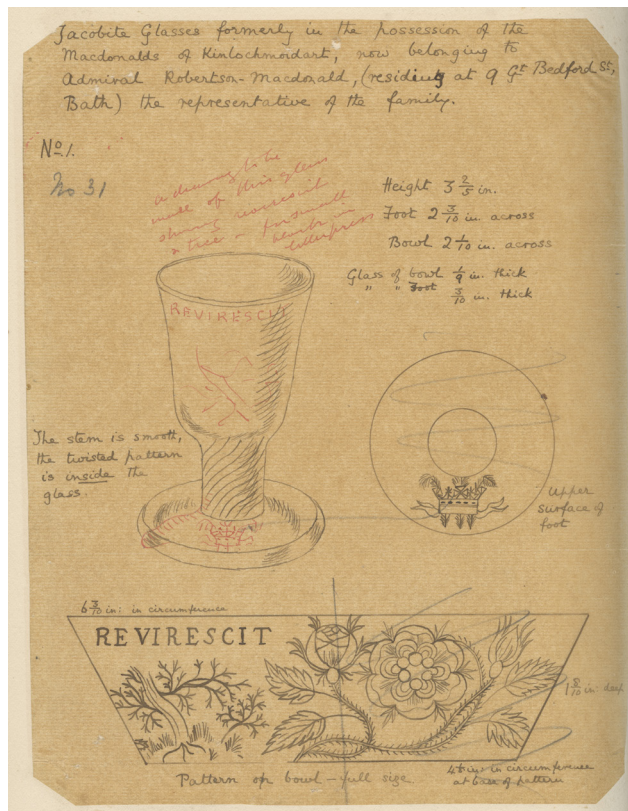 Jacobite Glasses formerly in the possession of the
Macdonalds of Kinlochmoidart, now belonging to
Admiral Robertson-Macdonald, (residing at 9 Gt Bedford St,
Bath) the representative of the family.
No 1.
No 31
a drawing to be
made of this glass
showing reverescit
& tree – for small
block in
letterpress
Height 3 2/5 in.
Foot 2 3/10 in. across
Bowl 2 1/10 in. across
Glass of bowl 1/9 in. thick
" " Foot 3/10 in. thick
REVIRESCIT
The stem is smooth,
the twisted pattern
is inside the
glass.
Upper
surface of
foot
6 3/10 in: in circumference
REVIRESCIT
1 8/10 in: deep
in circumference
at base of pattern
Pattern on bowl – full size